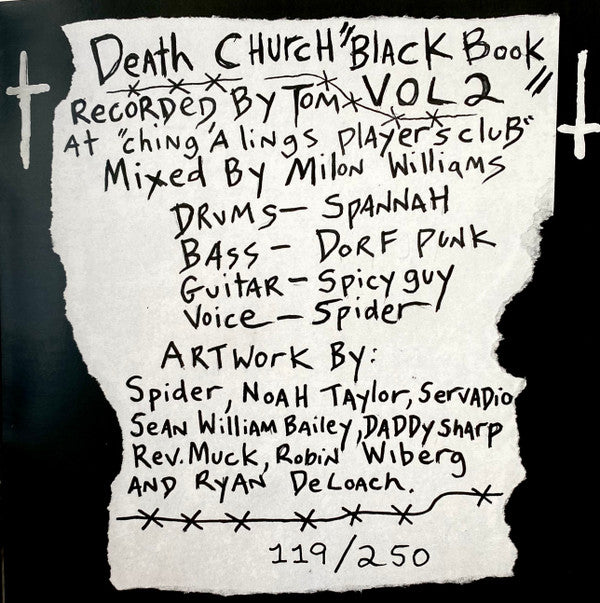 Death Church "Black Book
VOL 2"
Recorded By Tom
At "ching A lings player's club"
Mixed By Milon Williams
Drums - Spannah
Bass - Dorf Punk
Guitar - Spicy guy
Voice - Spider
Artwork By:
Spider, Noah Taylor, Servadio
Sean William Bailey, Daddy Sharp
Rev. Muck, Robin Wiberg
and Ryan DeLoach.
119/250